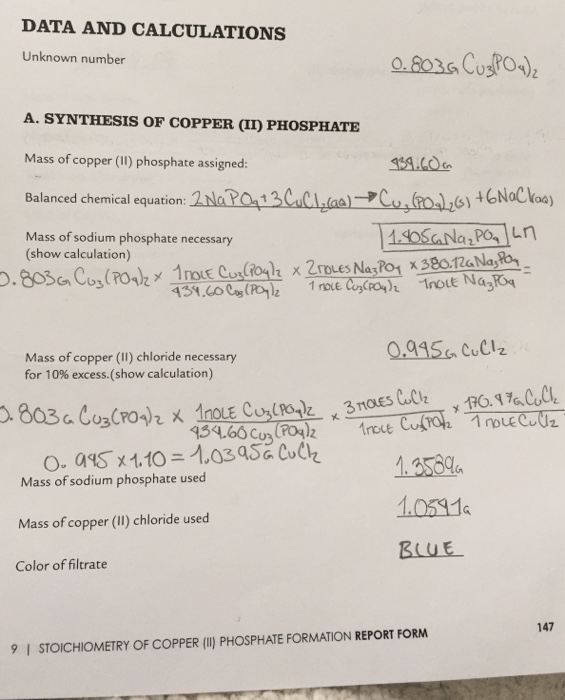 DATA AND CALCULATIONS
Unknown number
0.803g Cu3(PO4)2
A. SYNTHESIS OF COPPER (II) PHOSPHATE
Mass of copper (II) phosphate assigned: 434.60g
Balanced chemical equation: 2NaPO4+3CuCl2(aq)→Cu3(PO4)2(s)+6NaCl(aq)
Mass of sodium phosphate necessary 1.405g Na2PO4
(show calculation)
0.803g Cu3(PO4)2 × 1mole Cu3(PO4)2 / 434.60 Cu3(PO4)2 × 2moles Na3PO4 / 1 mole Cu3(PO4)2 × 380.12g Na3PO4 / 1mole Na3PO4 =
Mass of copper (II) chloride necessary 0.945g CuCl2
for 10% excess.(show calculation)
0.803g Cu3(PO4)2 × 1mole Cu3(PO4)2 / 434.60 Cu3(PO4)2 × 3moles CuCl2 / 1mole Cu3(PO4)2 × 170.47g CuCl2 / 1 mole CuCl2
0.945×1.10=1.0395g CuCl2
Mass of sodium phosphate used 1.3589g
Mass of copper (II) chloride used 1.0541g
Color of filtrate BLUE
9 | STOICHIOMETRY OF COPPER (II) PHOSPHATE FORMATION REPORT FORM 147